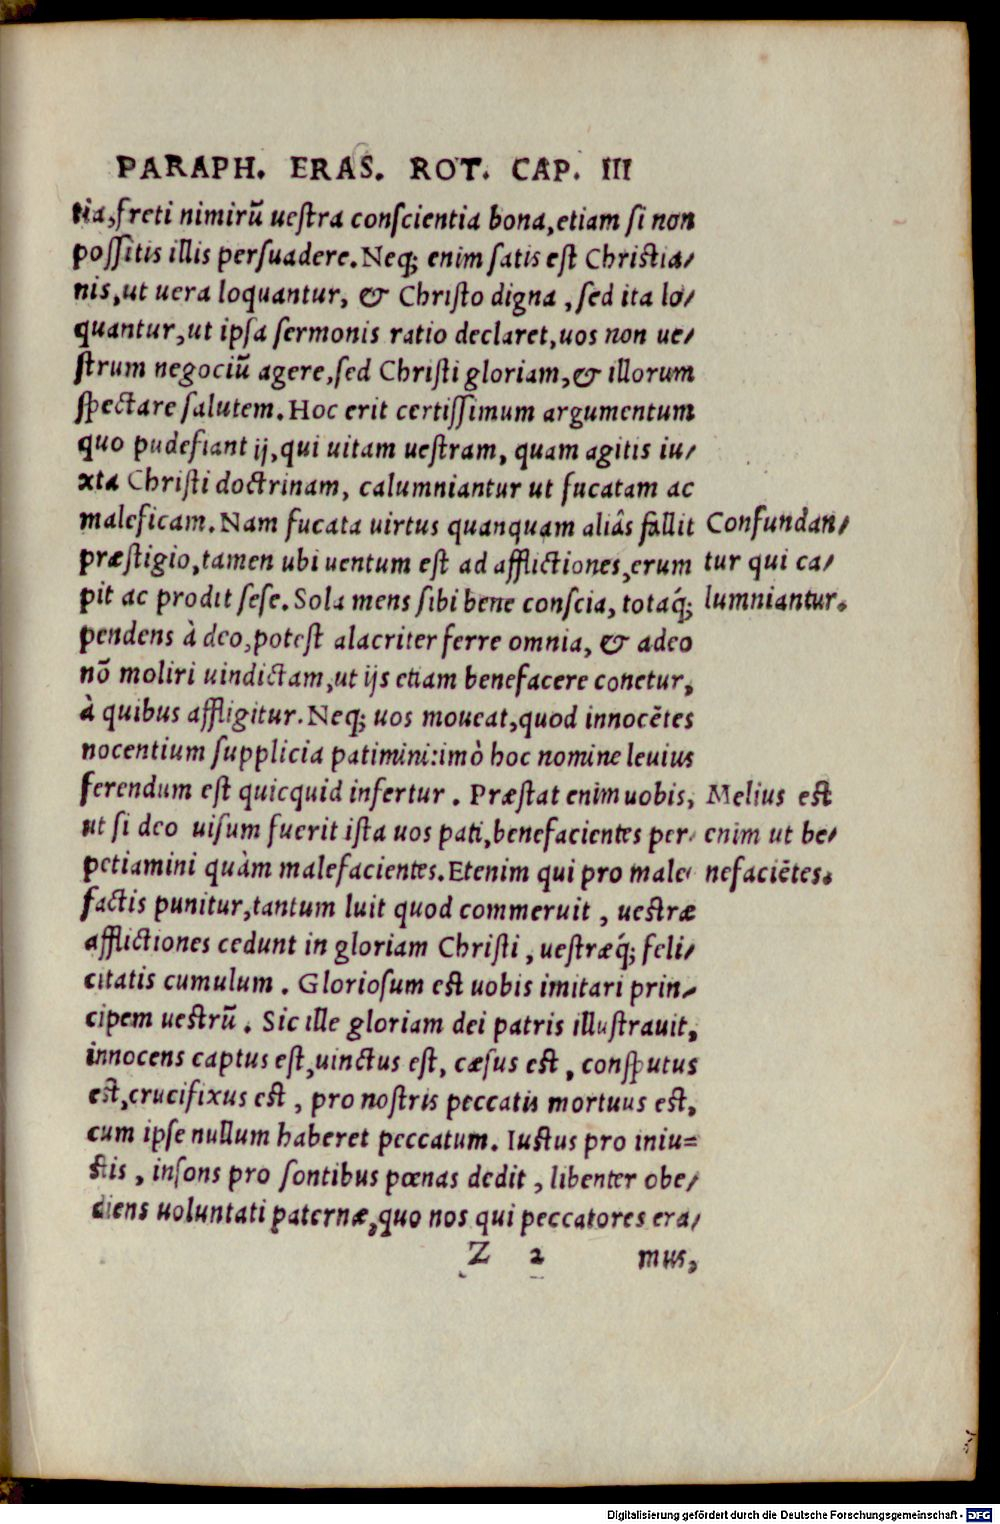 PARAPH. ERAS. ROT. CAP. III
tia, freti nimirũ uestra conscientia bona, etiam si non
possitis illis persuadere. Neq; enim satis est Christia/
nis, ut uera loquantur, & Christo digna, sed ita lo/
quantur, ut ipsa sermonis ratio declaret, uos non ue/
strum negociũ agere, sed Christi gloriam, & illorum
spectare salutem. Hoc erit certissimum argumentum
quo pudefiant ij, qui uitam uestram, quam agitis iu/
xta Christi doctrinam, calumniantur ut fucatam ac
maleficam. Nam fucata uirtus quanquam aliâs fallit
præstigio, tamen ubi uentum est ad afflictiones, erum
pit ac prodit sese. Sola mens sibi bene conscia, totaq́;
pendens à deo, potest alacriter ferre omnia, & adeo
nõ moliri uindictam, ut ijs etiam benefacere conetur,
à quibus affligitur. Neq; uos moueat, quod innocẽtes
nocentium supplicia patimini: imò hoc nomine leuius
ferendum est quicquid infertur. Præstat enim uobis,
ut si deo uisum fuerit ista uos pati, benefacientes per/
petiamini quàm malefacientes. Etenim qui pro male/
factis punitur, tantum luit quod commeruit, uestræ
afflictiones cedunt in gloriam Christi, uestræq́; feli/
citatis cumulum. Gloriosum est uobis imitari prin/
cipem uestrũ. Sic ille gloriam dei patris illustrauit,
innocens captus est, uinctus est, cæsus est, consputus
est, crucifixus est, pro nostris peccatis mortuus est,
cum ipse nullum haberet peccatum. Iustus pro iniu=
stis, insons pro sontibus pœnas dedit, libenter obe/
diens uoluntati paternæ, quo nos qui peccatores era/
Z 2 mus,
Confundan/
tur qui ca/
lumniantur.
Melius est
enim ut be/
nefaciẽtes.
Digitalisierung gefördert durch die Deutsche Forschungsgemeinschaft - DFG